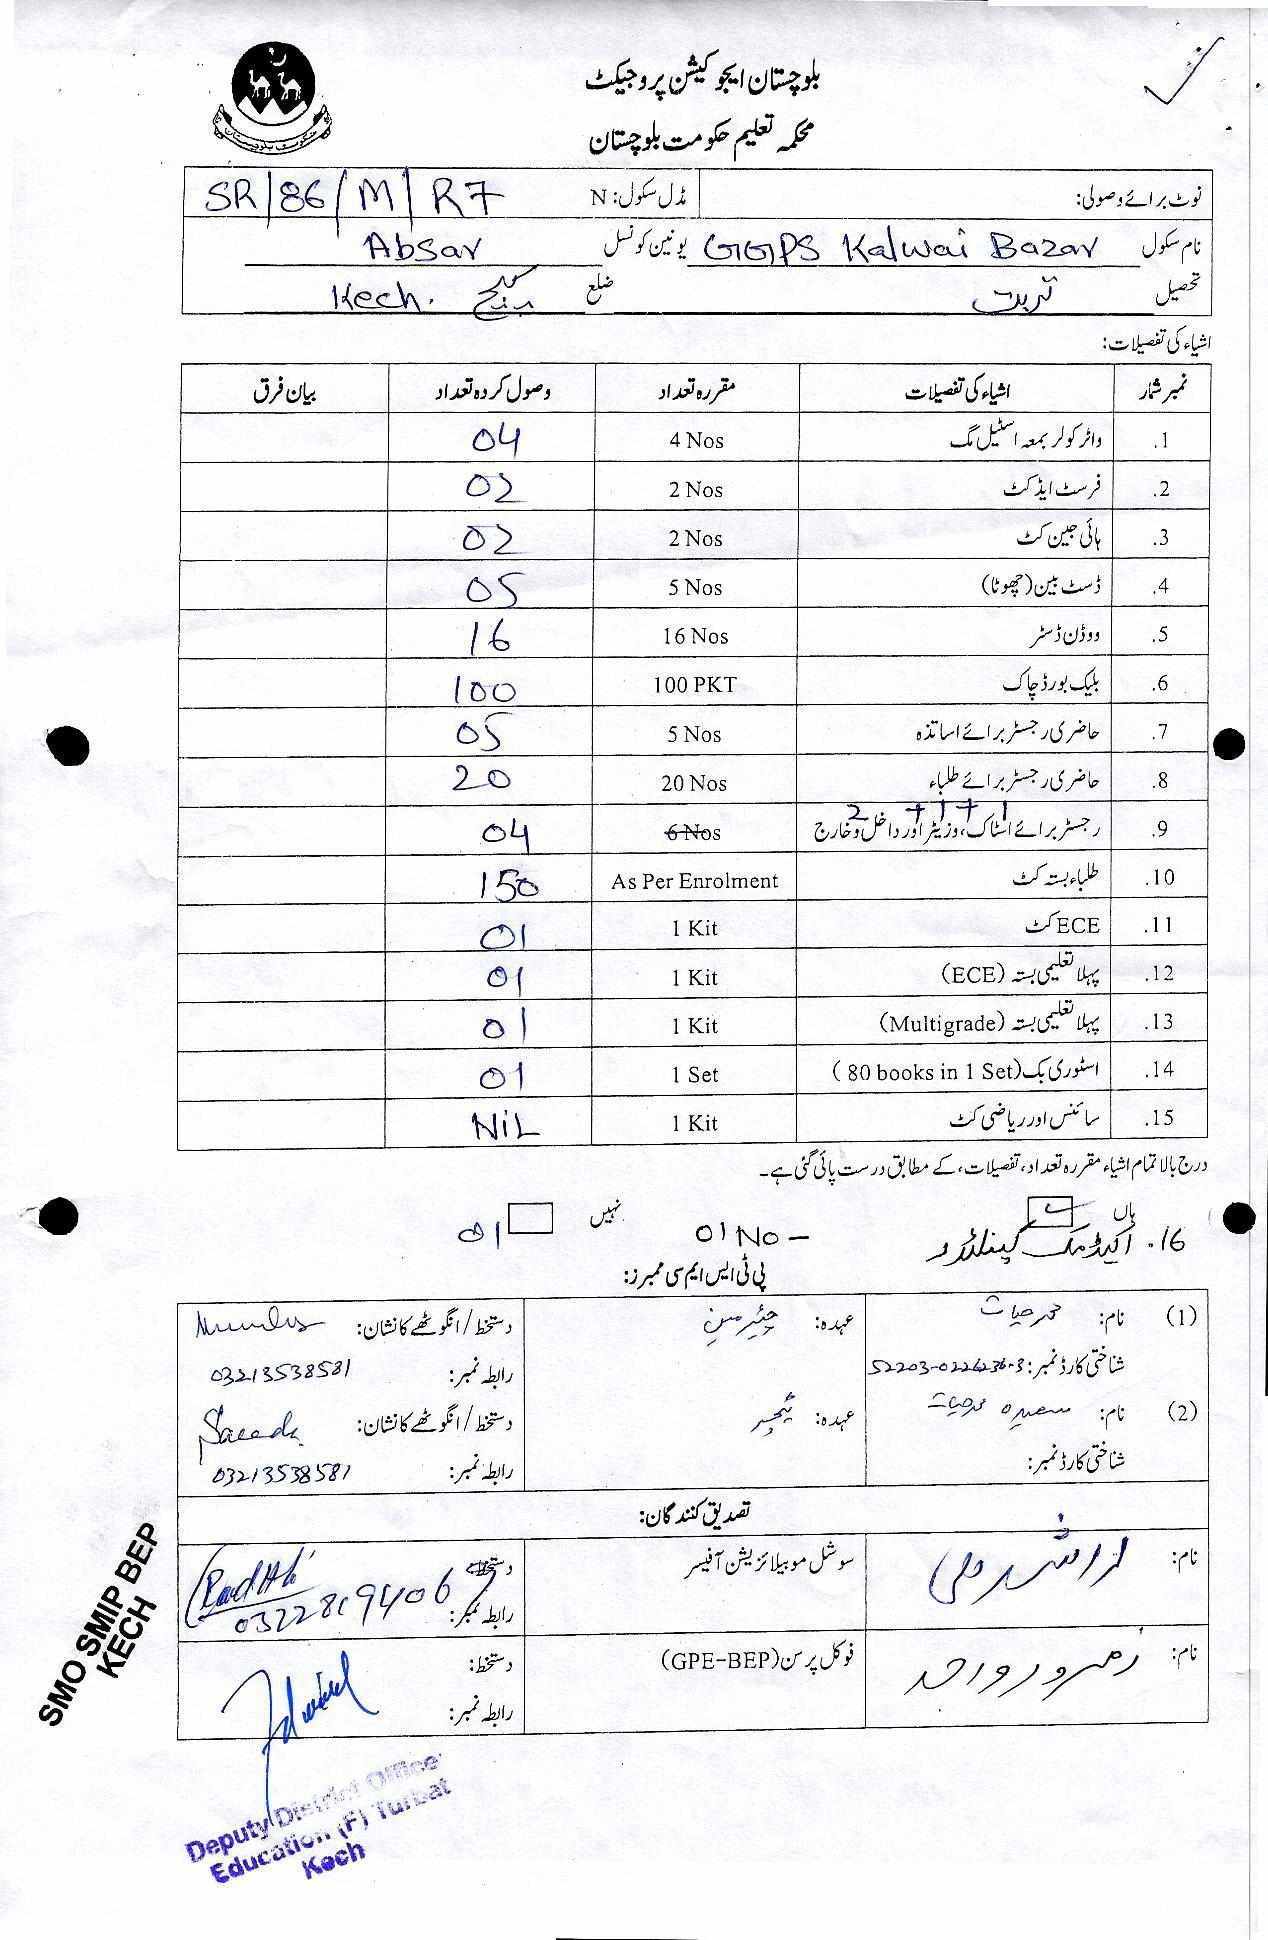 حکومت بلوچستان
بلوچستان ایجوکیشن پروجیکٹ
محکمہ تعلیم حکومت بلوچستان
نوٹ برائے وصولی: مڈل سکول: N SR/86/M/R7
نام سکول GGPS Kalwai Bazar یونین کونسل Absar
تحصیل تربت ضلع کیچ Kech.
اشیاء کی تفصیلات:
نمبر شمار اشیاء کی تفصیلات مقررہ تعداد وصول کردہ تعداد بیان فرق
1. واٹر کولر بمعہ اسٹیل مگ 4 Nos 04
2. فرسٹ ایڈ کٹ 2 Nos 02
3. ہائی جین کٹ 2 Nos 02
4. ڈسٹ بین (چھوٹا) 5 Nos 05
5. ووڈن ڈسٹر 16 Nos 16
6. بلیک بورڈ چاک 100 PKT 100
7. حاضری رجسٹر برائے اساتذہ 5 Nos 05
8. حاضری رجسٹر برائے طلباء 20 Nos 20
1 + 1 + 2
9. رجسٹر برائے اسٹاک، وزیٹر اور داخل و خارج 6 Nos 04
10. طلباء بستہ کٹ As Per Enrolment 150
11. ECE کٹ 1 Kit 01
12. پہلا تعلیمی بستہ (ECE) 1 Kit 01
13. پہلا تعلیمی بستہ (Multigrade) 1 Kit 01
14. اسٹوری بک (80 books in 1 Set) 1 Set 01
15. سائنس اور ریاضی کٹ 1 Kit NiL
درج بالا تمام اشیاء مقررہ تعداد، تفصیلات، کے مطابق درست پائی گئی ہے۔
ہاں نہیں
16. اکیڈمک کیلنڈر 01 No - 01
پی ٹی ایس ایم سی ممبرز:
(1) نام: محمد حیات عہدہ: چیئرمین دستخط / انگوٹھے کا نشان:
شناختی کارڈ نمبر: 52203-0226236-3 رابطہ نمبر: 03213538581
(2) نام: سعیدہ محمد حیات عہدہ: ٹیچر دستخط / انگوٹھے کا نشان: Saeeda
شناختی کارڈ نمبر: رابطہ نمبر: 03213538581
تصدیق کنندگان:
نام: راشد علی سوشل موبیلائزیشن آفیسر دستخط:
رابطہ نمبر: 03228194067
نام: زمرود واحد فوکل پرسن (GPE-BEP) دستخط:
رابطہ نمبر:
SMO SMIP BEP
KECH
Deputy District Office
Education (F) Turbat
Kech